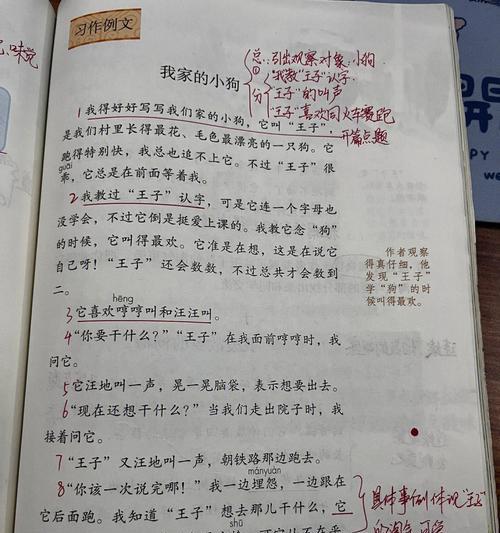 习作例文
味觉
总：引出观察对象：小狗
① 我教"王子"认字
分 "王子"的叫声
"王子"喜欢同火车赛跑
我家的小狗
1 我得好好写写我们家的小狗，它叫"王子"，
开篇点题
是我们村里长得最花、毛色最漂亮的一只狗。它
跑得特别快，我总也追不上它。不过"王子"很
guāi
乖，它总是在前面等着我。
2 我教过"王子"认字，可是它连一个字母也
没学会，不过它倒是挺爱上课的。我教它念"狗"
的时候，它叫得最欢。它准是在想，这是在说它
自己呀！"王子"还会数数，不过总共才会数到
二。
作者观察
得真仔细，他
发现"王子"
学"狗"的时
候叫得最欢。
hēng
3 它喜欢哼哼叫和汪汪叫。
4 "你要干什么？""王子"在我面前哼哼时，我
问它。
5 它汪地叫一声，晃一晃脑袋，表示想要出去。
6 "现在还想干什么？"当我们走出院子时，我
接着问它。
7 "王子"又汪地叫一声，朝铁路那边跑去。
mányuàn
8 "你该一次说完嘛！"我一边埋怨，一边跟在
它后面跑。我知道"王子"想去那儿干什么，它
shū
具体事例体现"王子"
PY
we